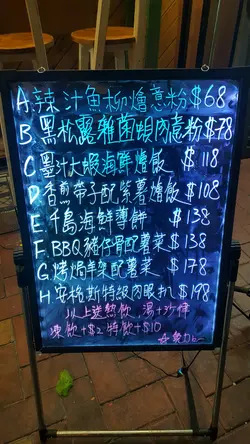 A.辣汁魚柳燴意粉$68
B.黑松露雜菌喇肉意粉$78
C墨汁大蝦海鮮燴飯 $118
D.香煎帶子配紫薯燴飯$108
E.千島海鮮薄餅 $138
F.BBQ豬仔骨配薯菜$138
G.烤焗羊架配薯菜 $178
H.安格斯特級肉眼扒$198
以上送熱飲 湯+沙律
凍飲+$2特飲+$10